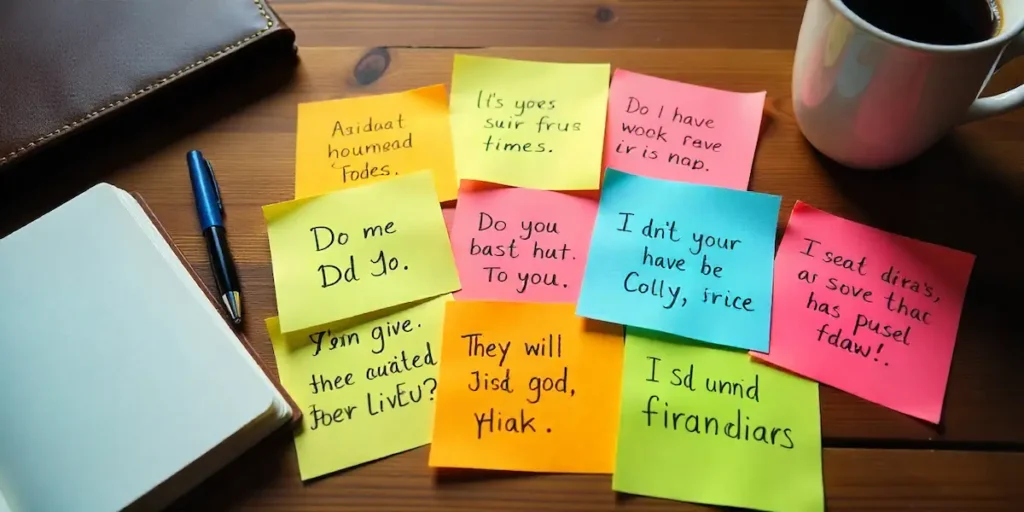 Asiduat
houmead
Todes.
It's yoes
suir frus
times.
Do I have
wook rave
ir is nap.
Do me
Dd Yo.
Do you
bast hut.
To you.
I dn't your
have be
Colly, irice
I seat dira's,
ar sove thac
has pusel
fdaw!.
Y'ein give.
thee auated
Foer LivEu?
They will
Jisd god,
Hiak.
I sd unnd
firandiars